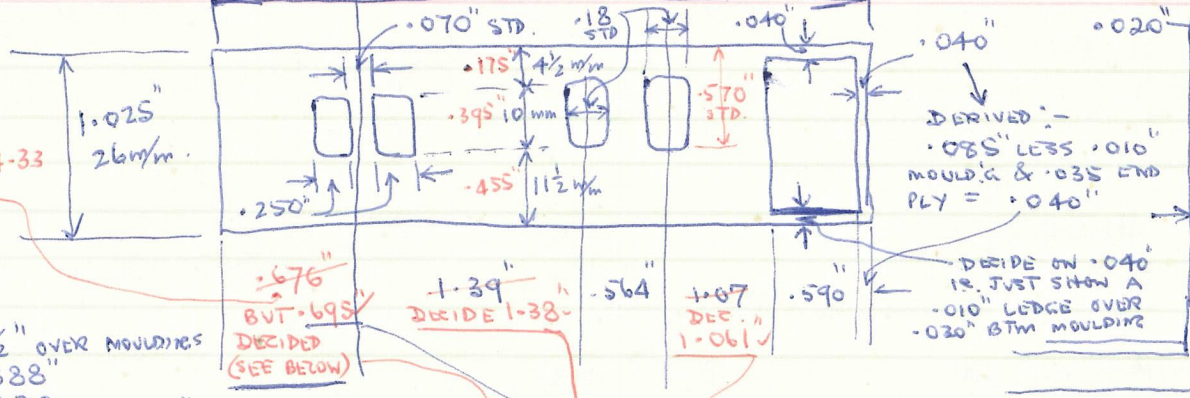 .070" STD.
.18
STD
.040"
.040"
.020"
1.025"
26m/m.
.175" 4½ m/m
.395" 10 mm
.455" 11½ m/m
.570"
STD.
.250"
4.33
DERIVED :-
.085" LESS .010"
MOULD'G & .035 END
PLY = .040"
DECIDE ON .040"
IE. JUST SHOW A
.010" LEDGE OVER
.030" BTM MOULDING
.676"
BUT .695"
DECIDED
(SEE BELOW)
1.39"
DECIDE 1.38
.564"
1.07
DEC."
1.061
.590"
½" OVER MOULDINGS
88"